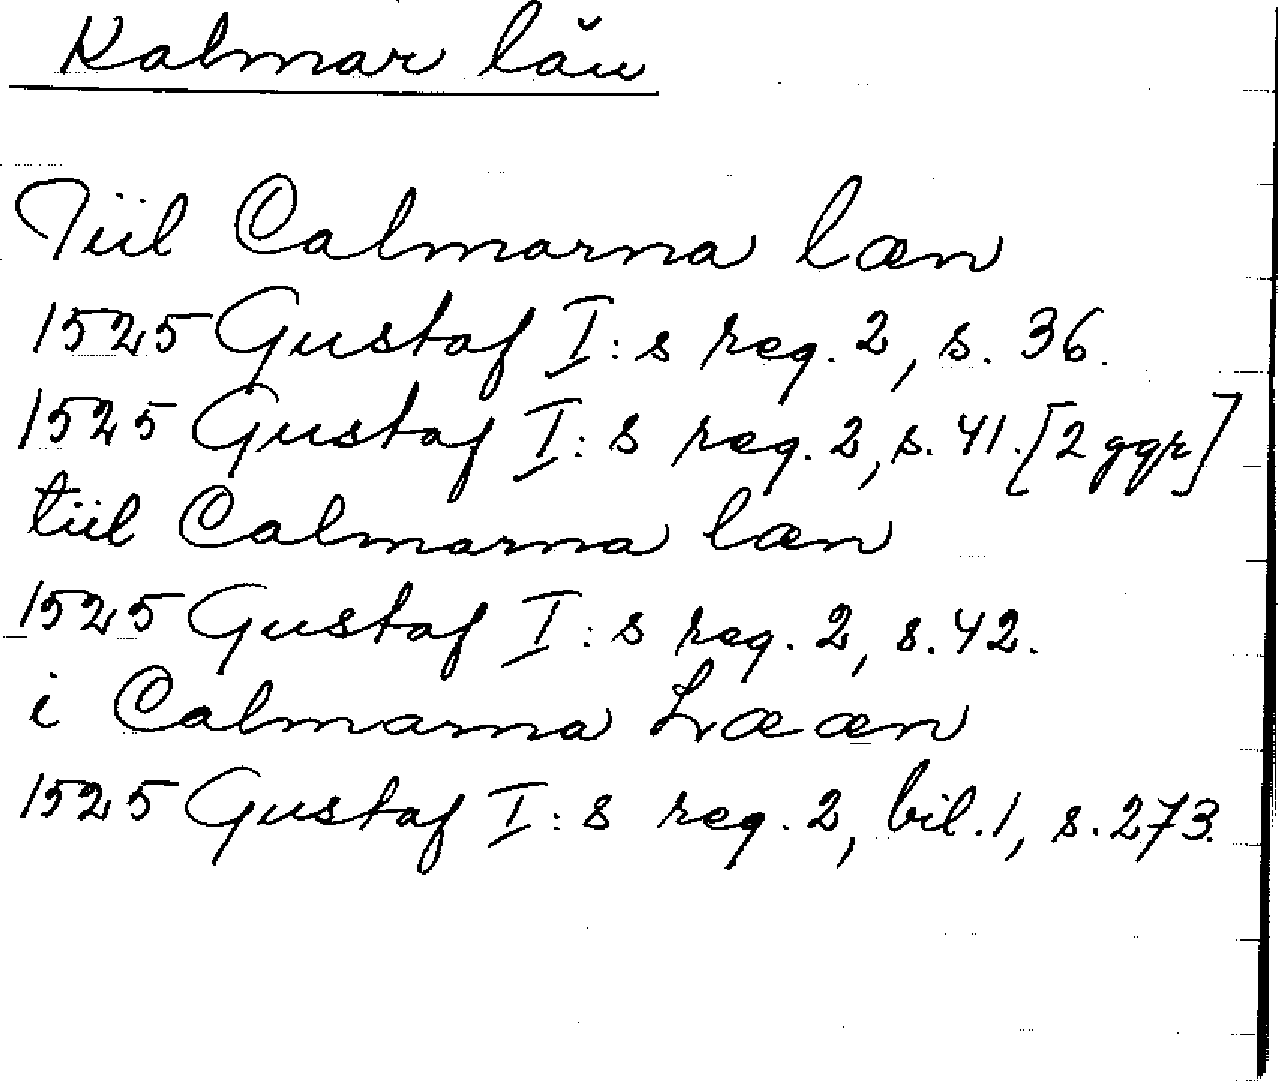 Kalmar län
Tiil Calmarna læn
1525 Gustaf I:s reg. 2, s. 36.
1525 Gustaf I:s reg. 2, s. 41. [2 ggr]
tiil Calmarna læn
1525 Gustaf I:s reg. 2, s. 42.
i Calmarna Lææn
1525 Gustaf I:s reg. 2, bil. 1, s. 273.